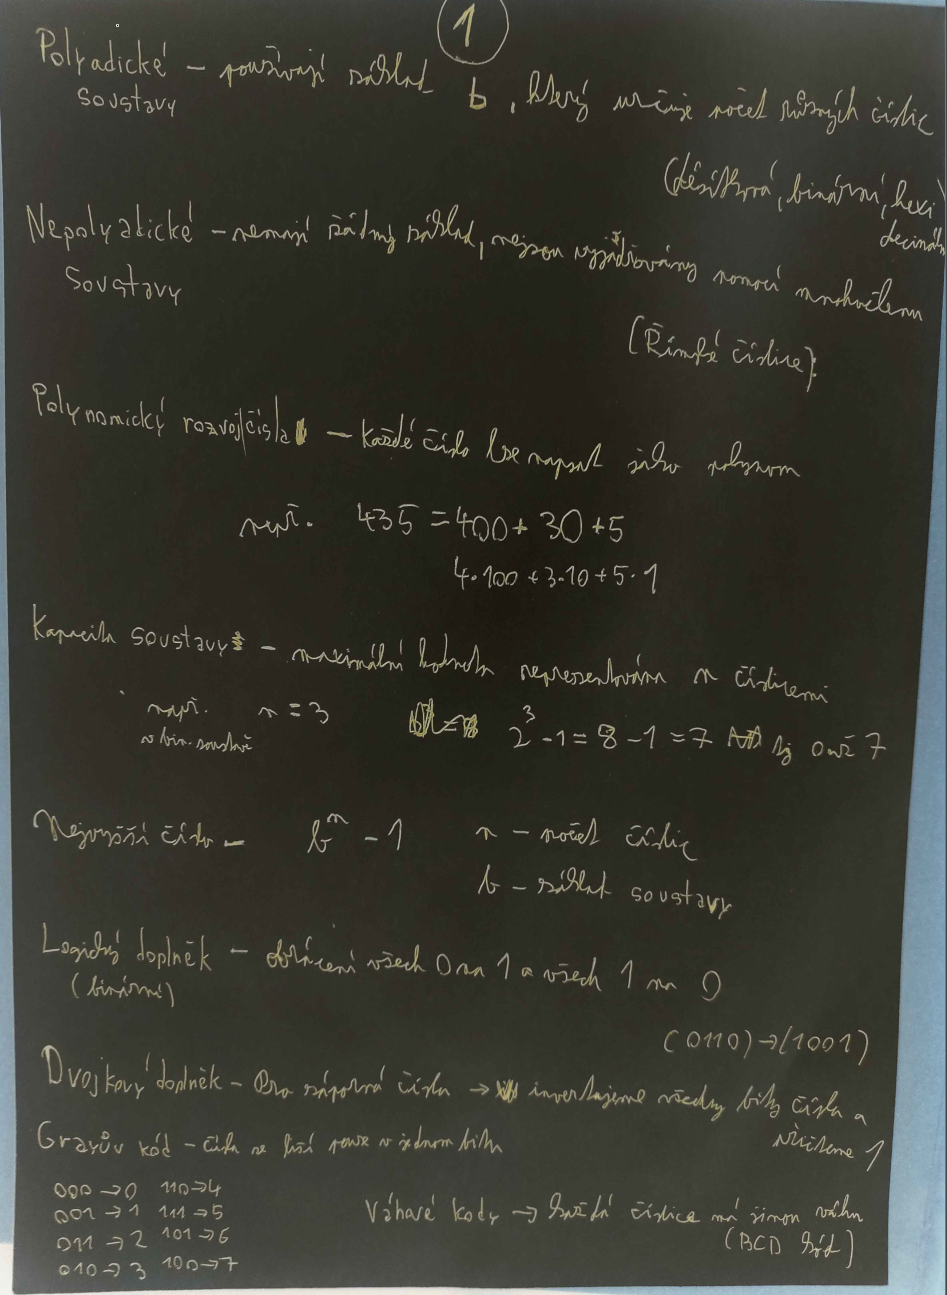 1
Polyadické – používají základ b, který určuje počet různých číslic
soustavy
(desítková, binární, hexi
decimáln
Nepolyatické – nemají žádný základ, nejsou vyjádřovány pomocí mnohočlenu
Soustavy
(Římské číslice).
Polynomický rozvoj čísla – každé číslo lze napsat jako polynom
např. 435 = 400 + 30 + 5
4·100 + 3·10 + 5·1
Kapacita soustavy – maximální hodnota reprezentována n číslicemi
např. n = 3 2³ - 1 = 8 - 1 = 7 tj 0 až 7
v bin. soustavě
Nejvyšší číslo – bⁿ - 1 n – počet číslic
b – základ soustavy
Logický doplněk – obrácení všech 0 na 1 a všech 1 na 0
(binární)
(0110) → (1001)
Dvojkový doplněk – Pro záporná čísla → invertujeme všechny bity čísla a
přičteme 1
Grayův kód – čísla se liší pouze v jednom bitu
000 → 0 110 → 4
001 → 1 111 → 5
011 → 2 101 → 6
010 → 3 100 → 7
Váhavé kody → každá číslice má jinou váhu
(BCD kód)